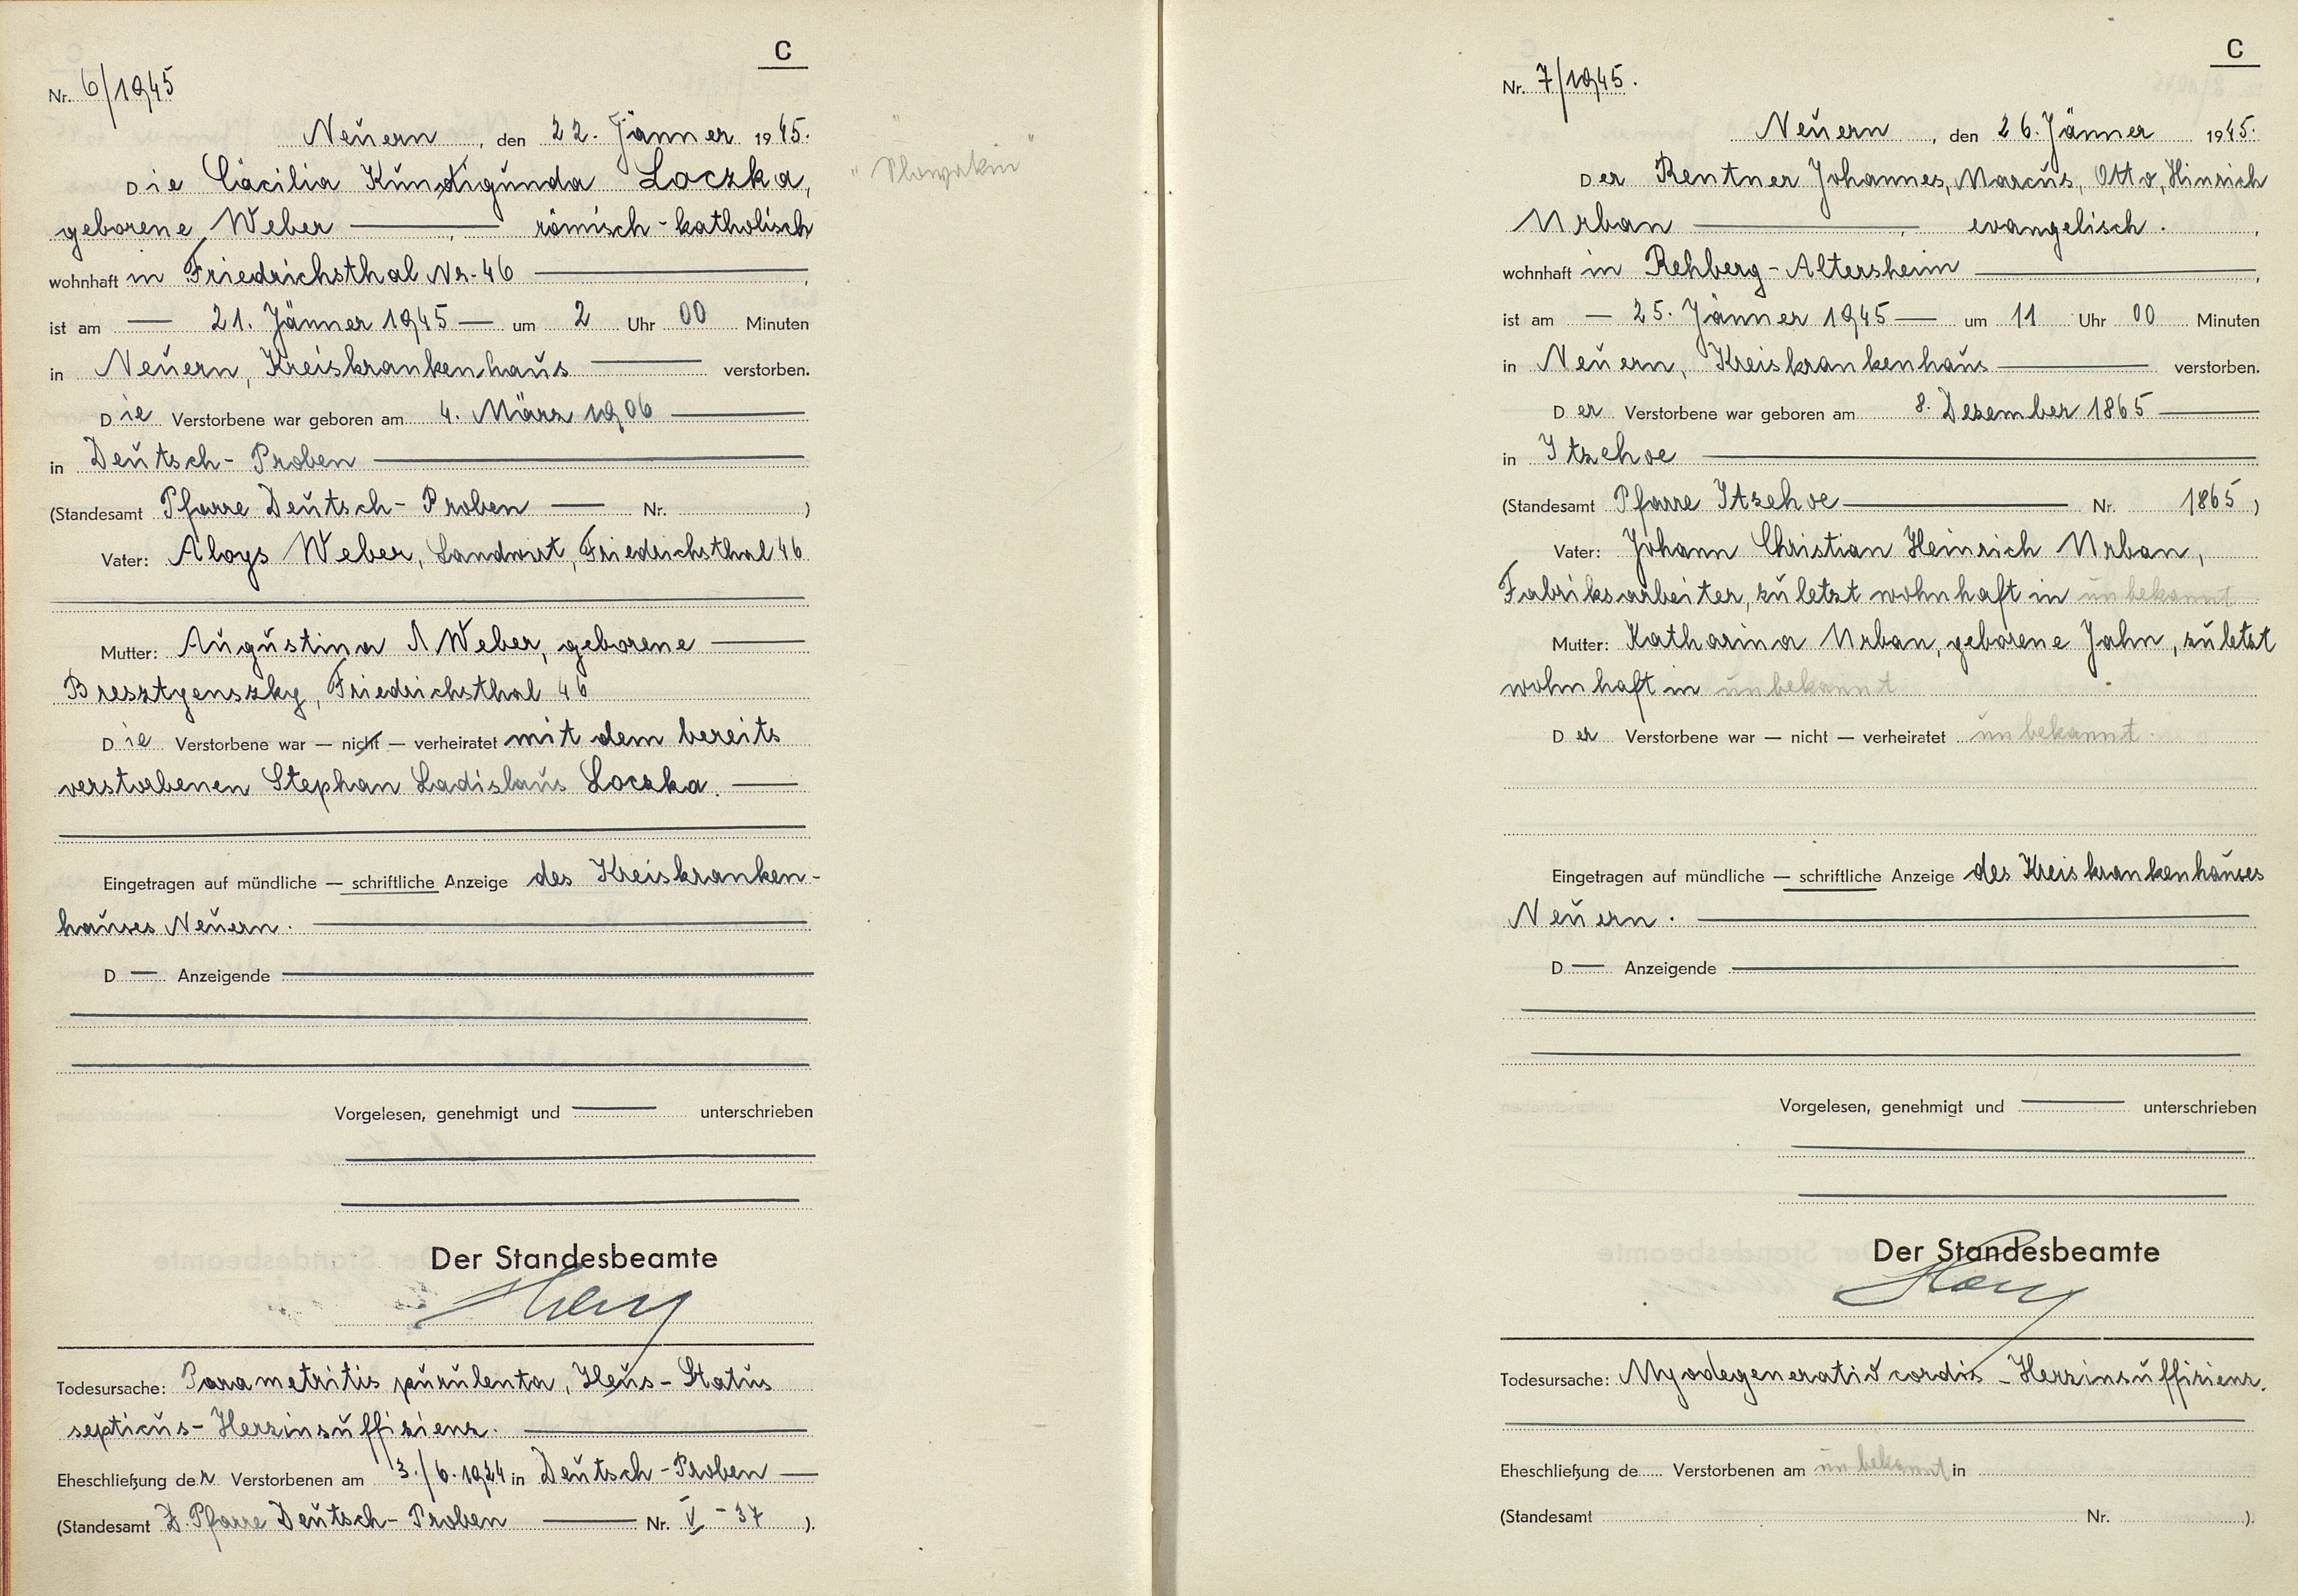 C
Nr. 6/1945
Neuern, den 22. Jänner 1945.
Die Cäcilia Kunigunda Loczka,
geborene Weber römisch-katholisch
wohnhaft in Friedrichsthal Nr. 46,
ist am 21. Jänner 1945 um 2 Uhr 00 Minuten
in Neuern, Kreiskrankenhaus verstorben.
Die Verstorbene war geboren am 4. März 1906
in Deutsch-Proben
(Standesamt Pfarre Deutsch-Proben Nr. )
Vater: Aloys Weber, Landwirt, Friedrichsthal 46
Mutter: Augustina Weber, geborene
Bresztyenszky, Friedrichsthal 46
Die Verstorbene war — nicht — verheiratet mit dem bereits
verstorbenen Stephan Ladislaus Loczka.
Eingetragen auf mündliche — schriftliche Anzeige des Kreiskranken-
hauses Neuern.
D — Anzeigende
Vorgelesen, genehmigt und unterschrieben
Der Standesbeamte
Todesursache: Parametritis purulenta, Ileus - Status
septicus - Herzinsuffizienz.
Eheschließung der Verstorbenen am 3./6.1924 in Deutsch-Proben
(Standesamt Pfarre Deutsch-Proben Nr. V - 37 ).
"Slowakin"
C
Nr. 7/1945.
Neuern, den 26. Jänner 1945.
Der Rentner Johannes, Marcus, Otto, Hinrich
Urban, evangelisch.,
wohnhaft in Rehberg-Altersheim,
ist am — 25. Jänner 1945 — um 11 Uhr 00 Minuten
in Neuern, Kreiskrankenhaus verstorben.
Der Verstorbene war geboren am 8. Dezember 1865
in Itzehoe
(Standesamt Pfarre Itzehoe Nr. 1865)
Vater: Johann Christian Heinrich Urban,
Fabriksarbeiter, zuletzt wohnhaft in unbekannt
Mutter: Katharina Urban, geborene Jahn, zuletzt
wohnhaft in unbekannt
Der Verstorbene war — nicht — verheiratet unbekannt.
Eingetragen auf mündliche — schriftliche Anzeige des Kreiskrankenhauses
Neuern.
D — Anzeigende
Vorgelesen, genehmigt und unterschrieben
Der Standesbeamte
Todesursache: Myodegeneratio cordis - Herzinsuffizienz.
Eheschließung de..... Verstorbenen am unbekannt in
(Standesamt Nr. ).